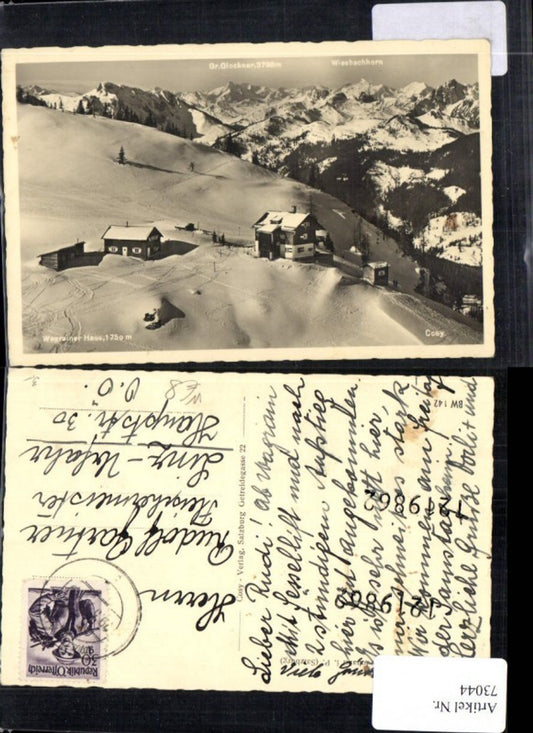 Gr.Glockner.3798m
Wiesbachhorn
Wagrainer Haus, 1750 m
Cosy.
BW 142
Cosy - Verlag, Salzburg Getreidegasse 22
Herrn
Rudolf Gärtner
Fleischermeister
Linz - Urfahr
Hauptstr. 30
O.Ö.
Lieber Rudi! Ab Wagrain
mit Sessellift und nach
2 stündigem Aufstieg
hier gut angekommen.
Es ist sehr nett hier,
stark
Wir kommen am Freitag
Herzliche Grüsse
und
1219862
1219862
30
Republik Österreich
Artikel Nr.
73044